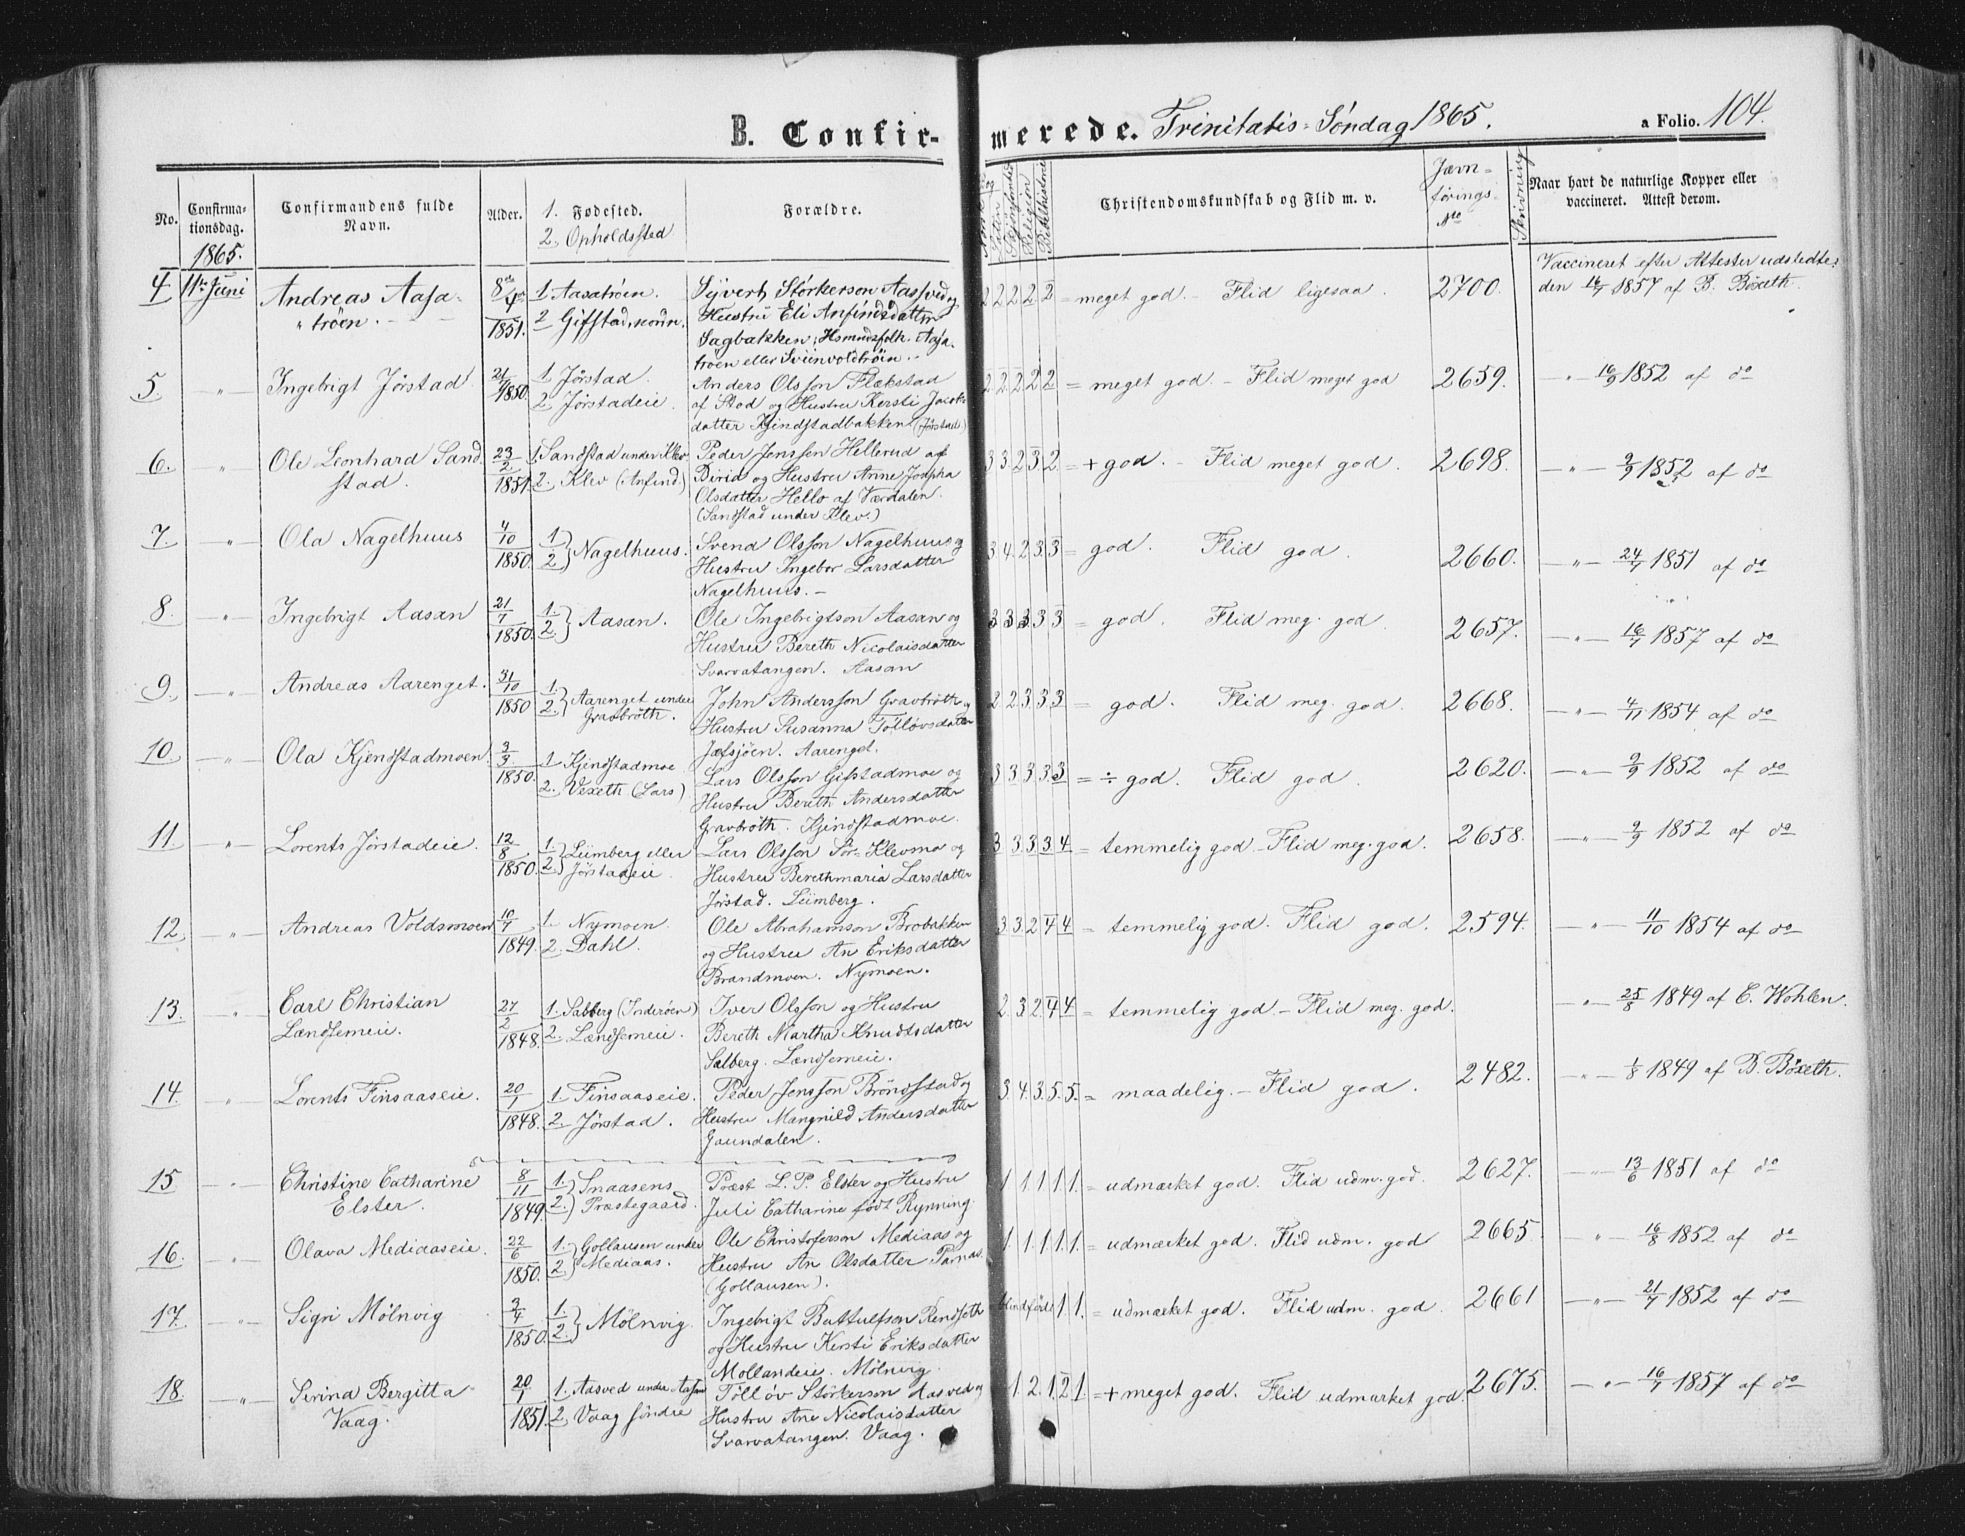 B. Confir-
merede. Trinitatis-Søndag 1865.
a Folio. 104.
No.
Confirma-
tionsdag.
1865.
Confirmandens fulde
Navn.
Alder.
1. Fødested.
2. Opholdssted
Forældre.
Religion
Christendomskundskab og Flid m. v.
Jævn-
førings-
No
Skrivning
Naar havt de naturlige Kopper eller
vaccineret. Attest derom.
4 11te Juni Andreas Aasa-
trøen.
1851.
1 Aasatrøen.
2 Gifstad, nørdre.
Sivert Størkerson Aasved og
Hustru Eli Anfindsdatter
Sagbakken, Husmandsfolk. Aasa-
trøen eller Sveinvoldtrøen.
2 2 2 2 2 = meget god. - Flid ligesaa. 2700.
Vaccineret efter Attester udstedte:
den 16/7 1857 af B. Böxeth.
5. " Ingebrigt Jörstad 1850.
1 Jörstad.
2 Jörstadeie.
Anders Olsson Flækstad
af Stod og Hustru Kersti Jacobs
datter Kjendstadbakken (Jörstad)
2 2 2 2 2 = meget god - Flid meget god 2659. " 16/9 1852 af do
6. " Ole Leonhard Sand
stad. 23/2 1851.
1. Sandstad under Klev
2. Klev (Anfind.)
Peder Jonsson Hellerud af
Birid og Hustru Anne Josepha
Olsdatter Hello af Værdalen.
(Sandstad under Klev.)
3 3 2 3 2 = + god. - Flid meget god. 2698. " 2/9 1852 af do
7 " Ola Nagelhuus 4/10 1850.
1 2 } Nagelhuus.
Svend Olsson Nagelhuus og
Hustru Ingebor Larsdatter
Nagelhuus. -
3 4 2 3 3 = god. Flid god. 2660. " 24/7 1851 af do
8. " Ingebrigt Aasan 21/7 1850.
1. 2. } Aasan.
Ole Ingebrigtson Aasan og
Hustru Bereth Nicolaisdatter
Svarvatangen. Aasan
3 3 3 3 3 = god. Flid meg. god. 2657. " 16/7 1857 af do
9. " Andreas Aarenget. 31/10 1850
1. 2. } Aarenget under
Gravbrøth.
John Andersson Gravbrøth og
Hustru Susanna Tolløvsdatter
Jæfsjøen. Aarenget.
2 2 3 3 3 = god. Flid meg. god. 2668. " 4/11 1854 af do
10. " Ola Kjendstadmoen. 3/3 1850.
1. Kjendstadmoe
2. Vexeth (Lars)
Lars Olsson Gifstadmoe og
Hustru Bereth Andersdatter
Gravbrøth. Kjendstadmoe.
3 3 3 3 3 = ÷ god. Flid god. 2620. " 2/9 1852 af do
11. " Lorents Jörstadeie. 12/8 1850.
1. 2. } Lümberg eller
Jörstadeie
Lars Olsson Sör-Klevmo og
Hustru Berethmaria Larsdatter
Jörstad. Lümberg.
3 3 3 3 4 = temmelig god - Flid meg. god. 2658. " 2/9 1852 af do
12. " Andreas Voldsmoen 10/7 1849.
1. Nymoen.
2. Dahl.
Ole Abrahamson Brobakken
og Hustru An Eriksdatter
Brandmoen. Nymoen.
3 3 2 4 4 = temmelig god. Flid god. 2594. " 11/10 1854 af do
13. " Carl Christian
Lændsemeie. 27/2 1848.
1. Salberg (Inderøen)
2. Lændsemeie.
Iver Olsson og Hustru
Bereth Martha Knudtsdatter
Salberg. Lændsemeie.
2 3 2 4 4 = temmelig god - Flid meg. god. " 25/8 1849 af C. Wohlen.
14. " Lorents Finsaaseie. 20/1 1848.
1. Finsaaseie.
2. Jörstad.
Peder Jonsson Bröndstad og
Hustru Mangnild Andersdatter
Gaundalen.
3. 4. 3. 5. 5. = maadelig. - Flid god. 2482. " 1/8 1849 af B. Böxeth.
15 " Christine Catharine
Elster. 8/11 1849.
1. 2. } Snaasens
Præstegaard.
Præst L. P. Elster og Hustru
Juli Catharine født Rynning.
1 1 1 1 1. = udmærket god. Flid udm. god. 2627. " 13/6 1851 af do
16. " Olava Mediaaseie. 22/6 1850.
1. 2. } Gollausen under
Mediaas.
Ole Christoferson Mediaas og
Hustru An Olsdatter Parnas.
(Gollausen).
1. 1. 1. 1. 1. = udmærket god. Flid udm. god 2665. " 16/8 1852 af do
17. " Sigri Mölnvig 2/4 1850.
1. 2. } Mölnvig.
Ingebrigt Battulfson Rendseth
og Hustru Kersti Eriksdatter
Mollandeie. Mölnvig.
blindfødt 1 1. = udmærket god. Flid udm. god. 2661 " 21/7 1852 af do
18. " Serina Bergitta
Vaag. 20/1 1851.
1. Aasved under Aasan
2. Vaag søndre
Tolløv Størkerson Aasved og
Hustru Ane Nicolaisdatter
Svarvatangen. Vaag.
1 2 1 2 1 = + meget god. Flid udmærket god. 2675. " 16/7 1857 af do